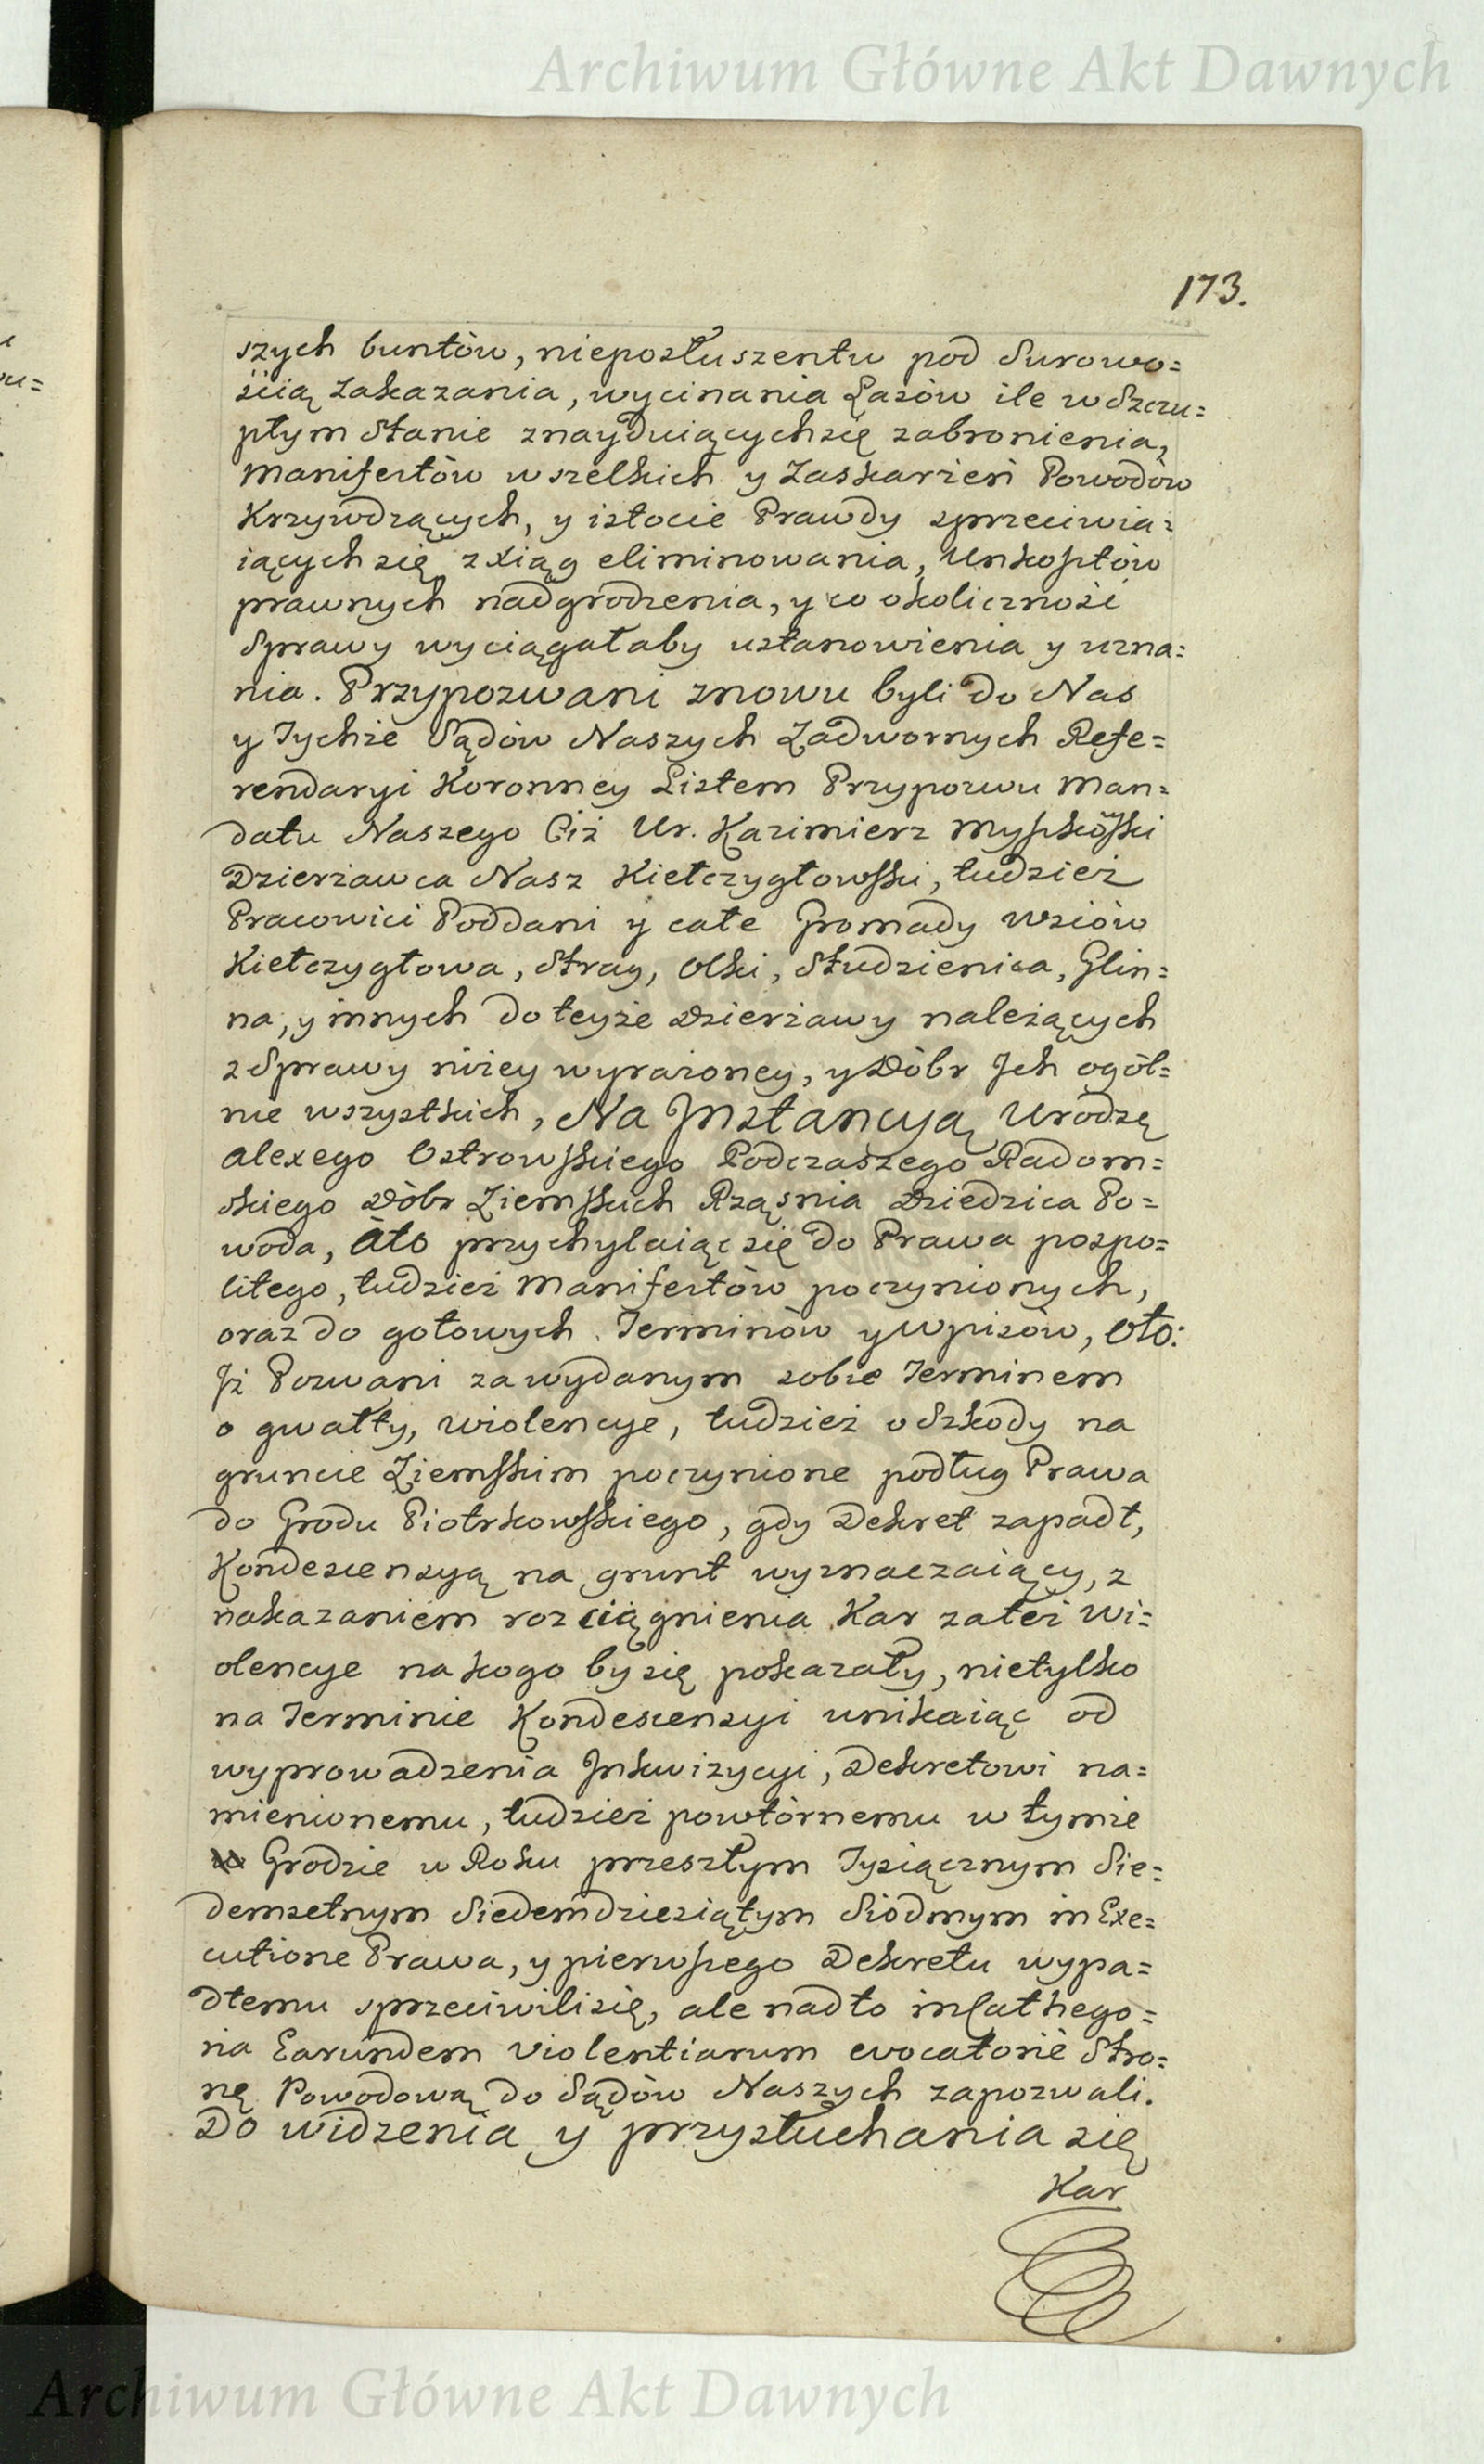 Archiwum Główne Akt Dawnych
173.
szych buntòw, nieposłuszentw pod Surowo=
ścią zakazania, wycinania Lasòw ile w Szczu=
płym Stanie znayduiących się zabronienia,
Manifestòw wszelkich y Zaskarżeń Powodòw
Krzywdzących, y istocie Prawdy sprzeciwia=
iących się z Xiąg eliminowania, Unkosztòw
prawnych nadgrodzenia, y co okoliczność
Sprawy wyciągałaby ustanowienia y uzna=
nia. Przypozwani znowu byli do Nas
y Tychże Sądòw Naszych Zadwornych Refe=
rendaryi Koronney Listem Przypozwu Man=
datu Naszego Ciż Ur. Kazimierz
Dzierżawca Nasz Kiełczygłowski, tudzież
Pracowici Poddani y całe Gromady Wsiòw
Kiełczygłowa, Stray, Olki, Studzienica, Glin=
na, y innych do teyże Dzierżawy należących
z Sprawy niżey wyrażoney, y Dòbr Jch ogòl=
nie wszystkich, Na Jnstancyą Urodzę
Alexego Ostrowskiego Podczaszego Radom=
skiego Dòbr Ziemskich Rząśnia Dziedzica Po=
woda, Ato przychylaiąc się do Prawa pospo=
litego, tudzież Manifestòw poczynionych,
oraz do gotowych Terminòw y Wpisòw, Oto:
Jż Pozwani za wydanym sobie Terminem
o gwałty, wiolencye, tudzież o Szkody na
gruncie Ziemskim poczynione podług Prawa
do Grodu Piotrkowskiego, gdy Dekret zapadł,
Kondescensyą na grunt wyznaczaiący, z
nakazaniem rozciągnienia Kar zateż wi=
olencye na kogo by się pokazały, nietylko
na Terminie Kondescensyi unikaiąc od
wyprowadzenia Jnkwizycyi, Dekretowi na=
mienionemu, tudzież powtòrnemu w tymże
Grodzie w Roku przeszłym Tysiącznym Sie=
demsetnym Siedemdziesiątym Siòdmym in Exe=
cutione Prawa, y pierwszego Dekretu wypa=
dłemu sprzeciwili się, ale nadto in Cathego=
ria Earundem Violentiarum evocatorie Stro=
nę Powodową do Sądòw Naszych zapozwali.
Do widzenia y przysłuchania się
Kar
Archiwum Główne Akt Dawnych